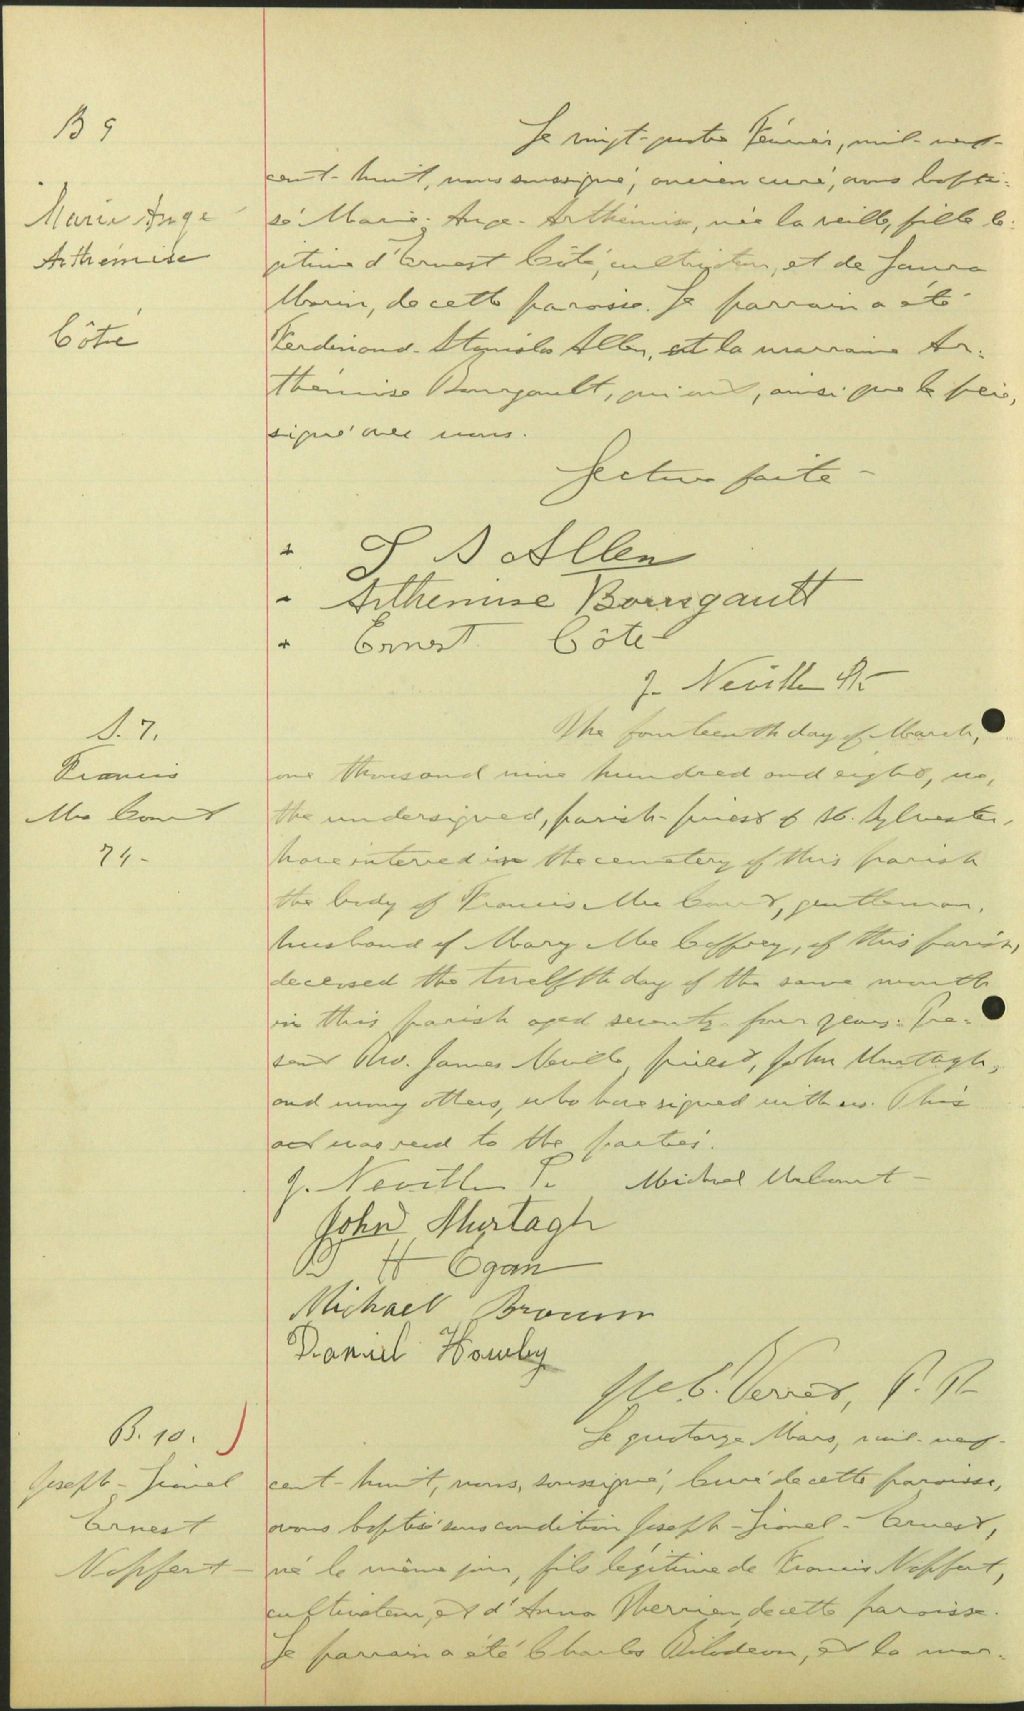 B 9
Marie Ange
Arthémise
Côté
Le vingt-quatre Février, mil-neuf-
cent-huit, nous soussigné, ancien curé, avons bapti-
sé Marie-Ange-Arthémise, née la veille, fille lé-
gitime d'Ernest Côté, cultivateur, et de Laura
Morin, de cette paroisse. Le parrain a été
Ferdinand-Stanislas Allen, et la marraine Ar-
thémise Bourgault, qui ont, ainsi que le père,
signé avec nous.
Lecture faite -
+ S Allen
- Arthemise Bourgault
+ Ernest Côté
J. Neville Ptr
S. 7.
Francis
Mc Court
74-
The fourteenth day of March,
one thousand nine hundred and eight, we,
the undersigned, parish-priest of St. Sylvester,
have interred in the cemetery of this parish
the body of Francis Mc Court, gentleman,
husband of Mary Mc Caffrey, of this parish,
deceased the twelfth day of the same month
in this parish aged seventy-four years. Pre-
sent Rvd. James Neville, priest, John Murtagh,
and many others, who have signed with us. This
act was read to the parties.
J. Neville P. Michael McCourt -
John Murtagh
H Egan
Michael Brown
Daniel Howley
C. Verret, P. P.
B. 10.
Joseph-Lionel
Ernest
Noppert -
Le quatorze Mars, mil-neuf-
cent-huit, nous, soussigné, Curé de cette paroisse,
avons baptisé sous condition Joseph-Lionel-Ernest,
né le même jour, fils légitime de Francis Noppert,
cultivateur, et d'Anna Therrien, de cette paroisse.
Le parrain a été Charles Bilodeau, et la mar-